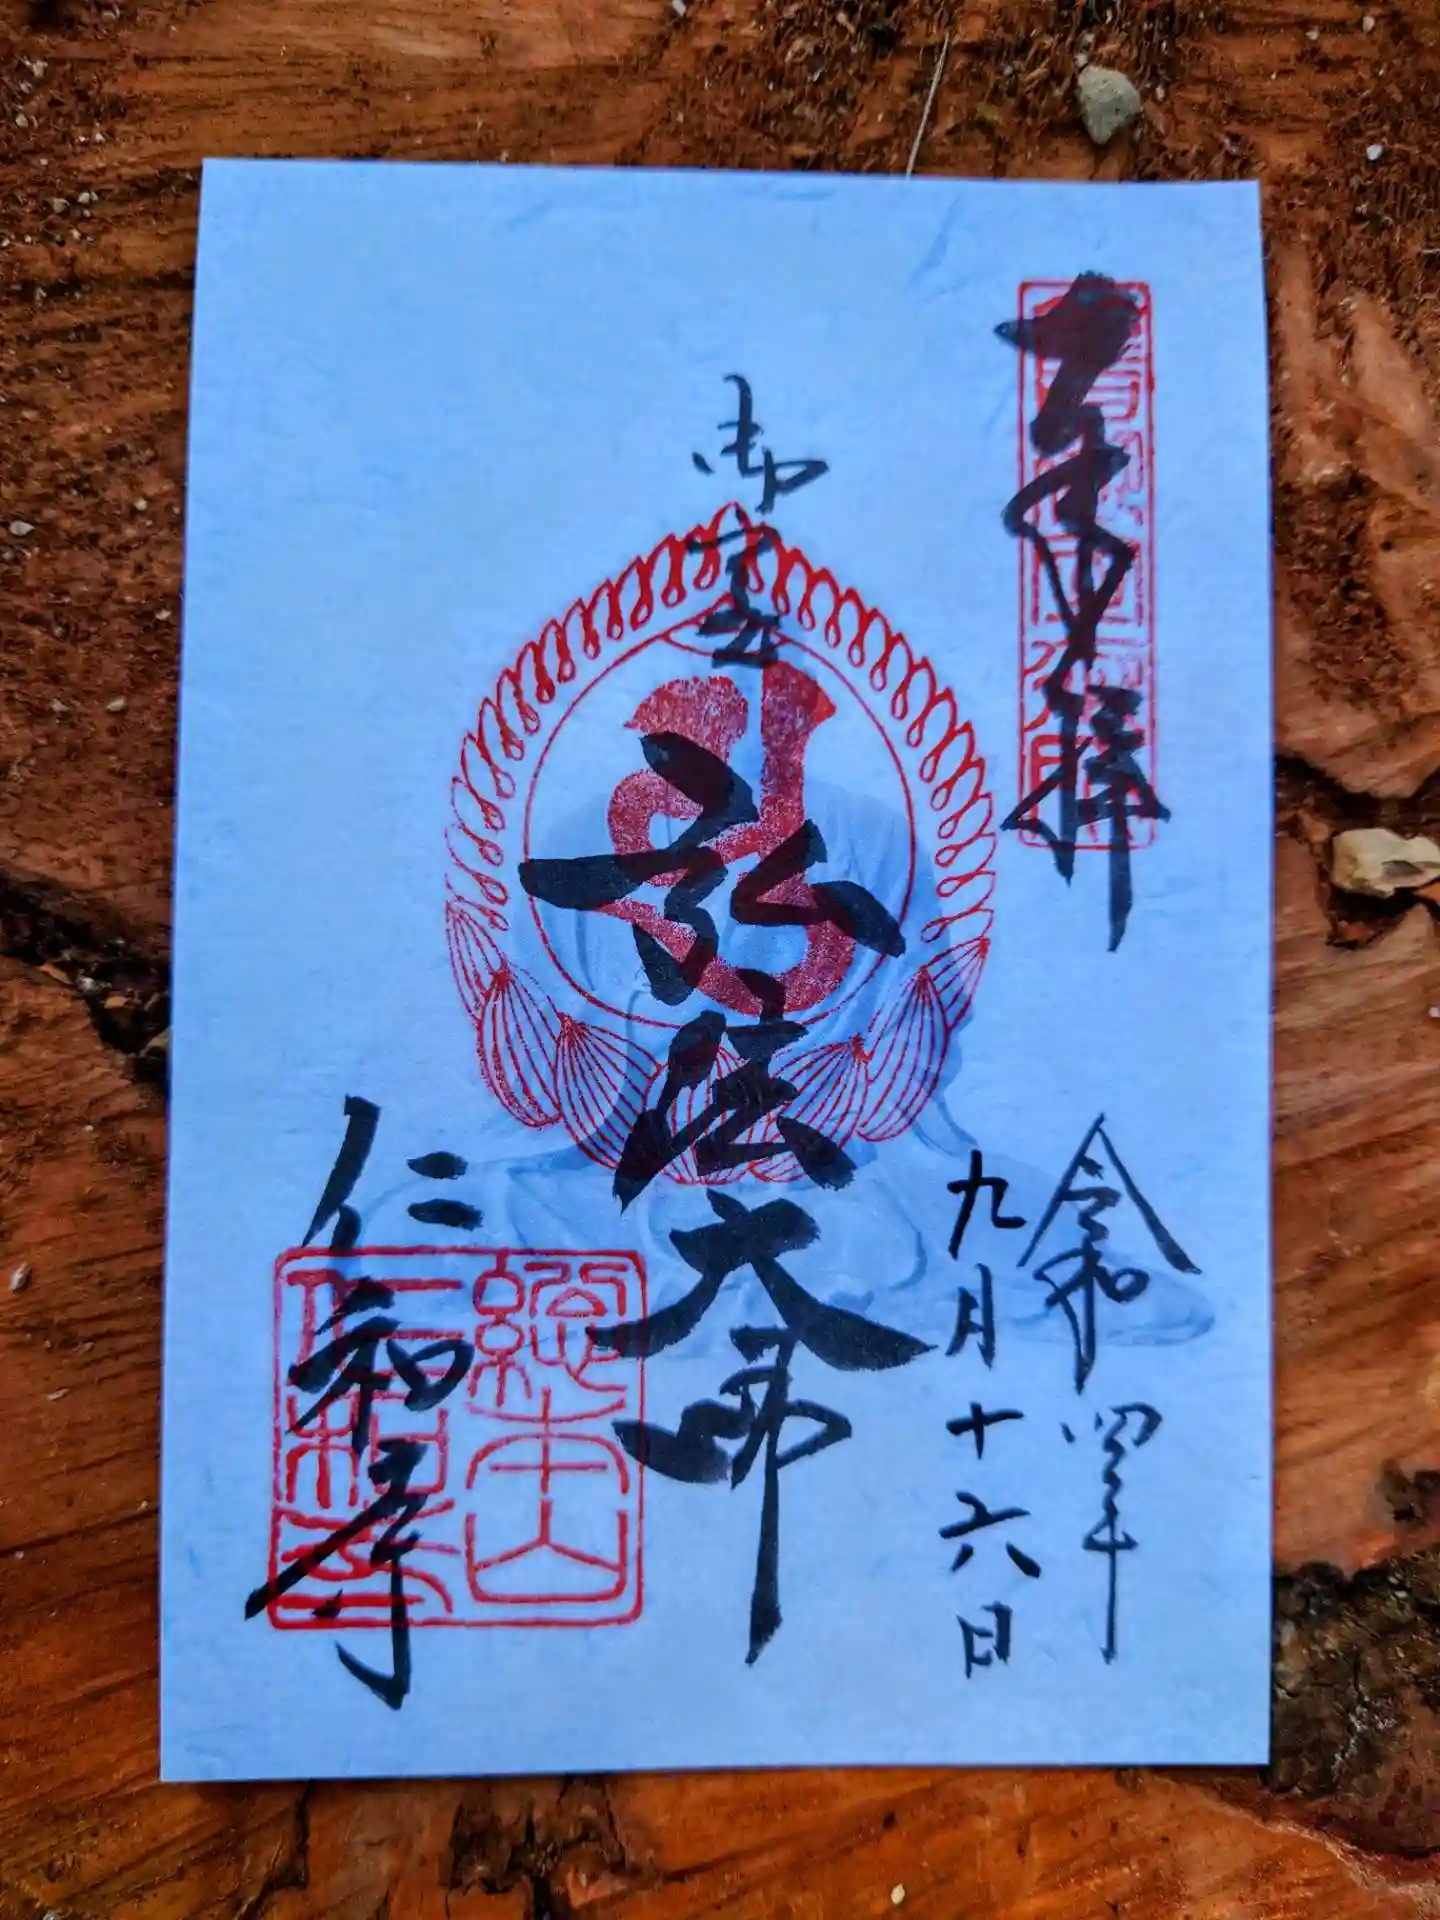 奉拝
令和四年
九月十六日
御室
弘法大師
仁和寺
総本山
仁和寺